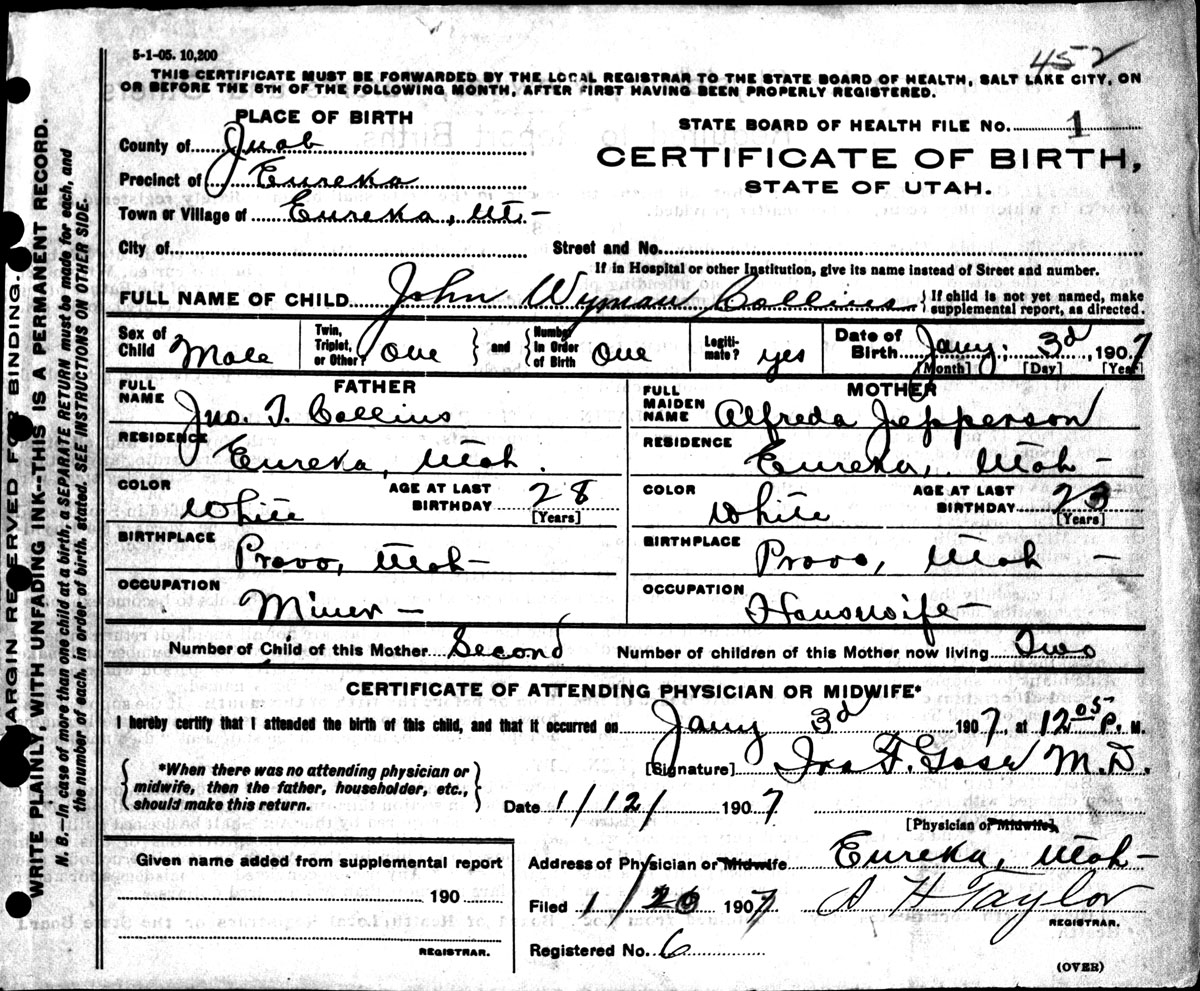 5-1-05. 10,200
452
THIS CERTIFICATE MUST BE FORWARDED BY THE LOCAL REGISTRAR TO THE STATE BOARD OF HEALTH, SALT LAKE CITY, ON
OR BEFORE THE 5TH OF THE FOLLOWING MONTH, AFTER FIRST HAVING BEEN PROPERLY REGISTERED.
PLACE OF BIRTH
County of Juab
Precinct of Eureka
Town or Village of Eureka, Ut.-
City of
STATE BOARD OF HEALTH FILE NO. 1
CERTIFICATE OF BIRTH,
STATE OF UTAH.
Street and No.
If in Hospital or other Institution, give its name instead of Street and number.
FULL NAME OF CHILD John Wyman Collins { If child is not yet named, make supplemental report, as directed.
Sex of Child Male Twin, Triplet, or Other? One } and { Number In Order of Birth One Legiti- mate? yes Date of Birth Jany. 3d, 1907
[Month] [Day] [Year]
FATHER
FULL NAME Jno. T. Collins
RESIDENCE Eureka, Utah.
COLOR White AGE AT LAST BIRTHDAY 28
[Years]
BIRTHPLACE Provo, Utah-
OCCUPATION Miner-
MOTHER
FULL MAIDEN NAME Alfreda Jepperson
RESIDENCE Eureka, Utah-
COLOR White AGE AT LAST BIRTHDAY 23
[Years]
BIRTHPLACE Provo, Utah -
OCCUPATION Houswife-
Number of Child of this Mother Second Number of children of this Mother now living Two
CERTIFICATE OF ATTENDING PHYSICIAN OR MIDWIFE*
I hereby certify that I attended the birth of this child, and that it occurred on Jany 3d 1907, at 12 05 P. M.
{ *When there was no attending physician or
midwife, then the father, householder, etc.,
should make this return. }
[Signature] M.D.
Date 1/12/ 1907
[Physician or Midwife]
Given name added from supplemental report
190
REGISTRAR.
Address of Physician or Midwife Eureka, Utah-
Filed 1/20 1907 A H Taylor
REGISTRAR.
Registered No. 6
(OVER)
MARGIN RESERVED FOR BINDING.
WRITE PLAINLY, WITH UNFADING INK—THIS IS A PERMANENT RECORD.
N. B.—In case of more than one child at a birth, a SEPARATE RETURN must be made for each, and
the number of each, in order of birth, stated. SEE INSTRUCTIONS ON OTHER SIDE.